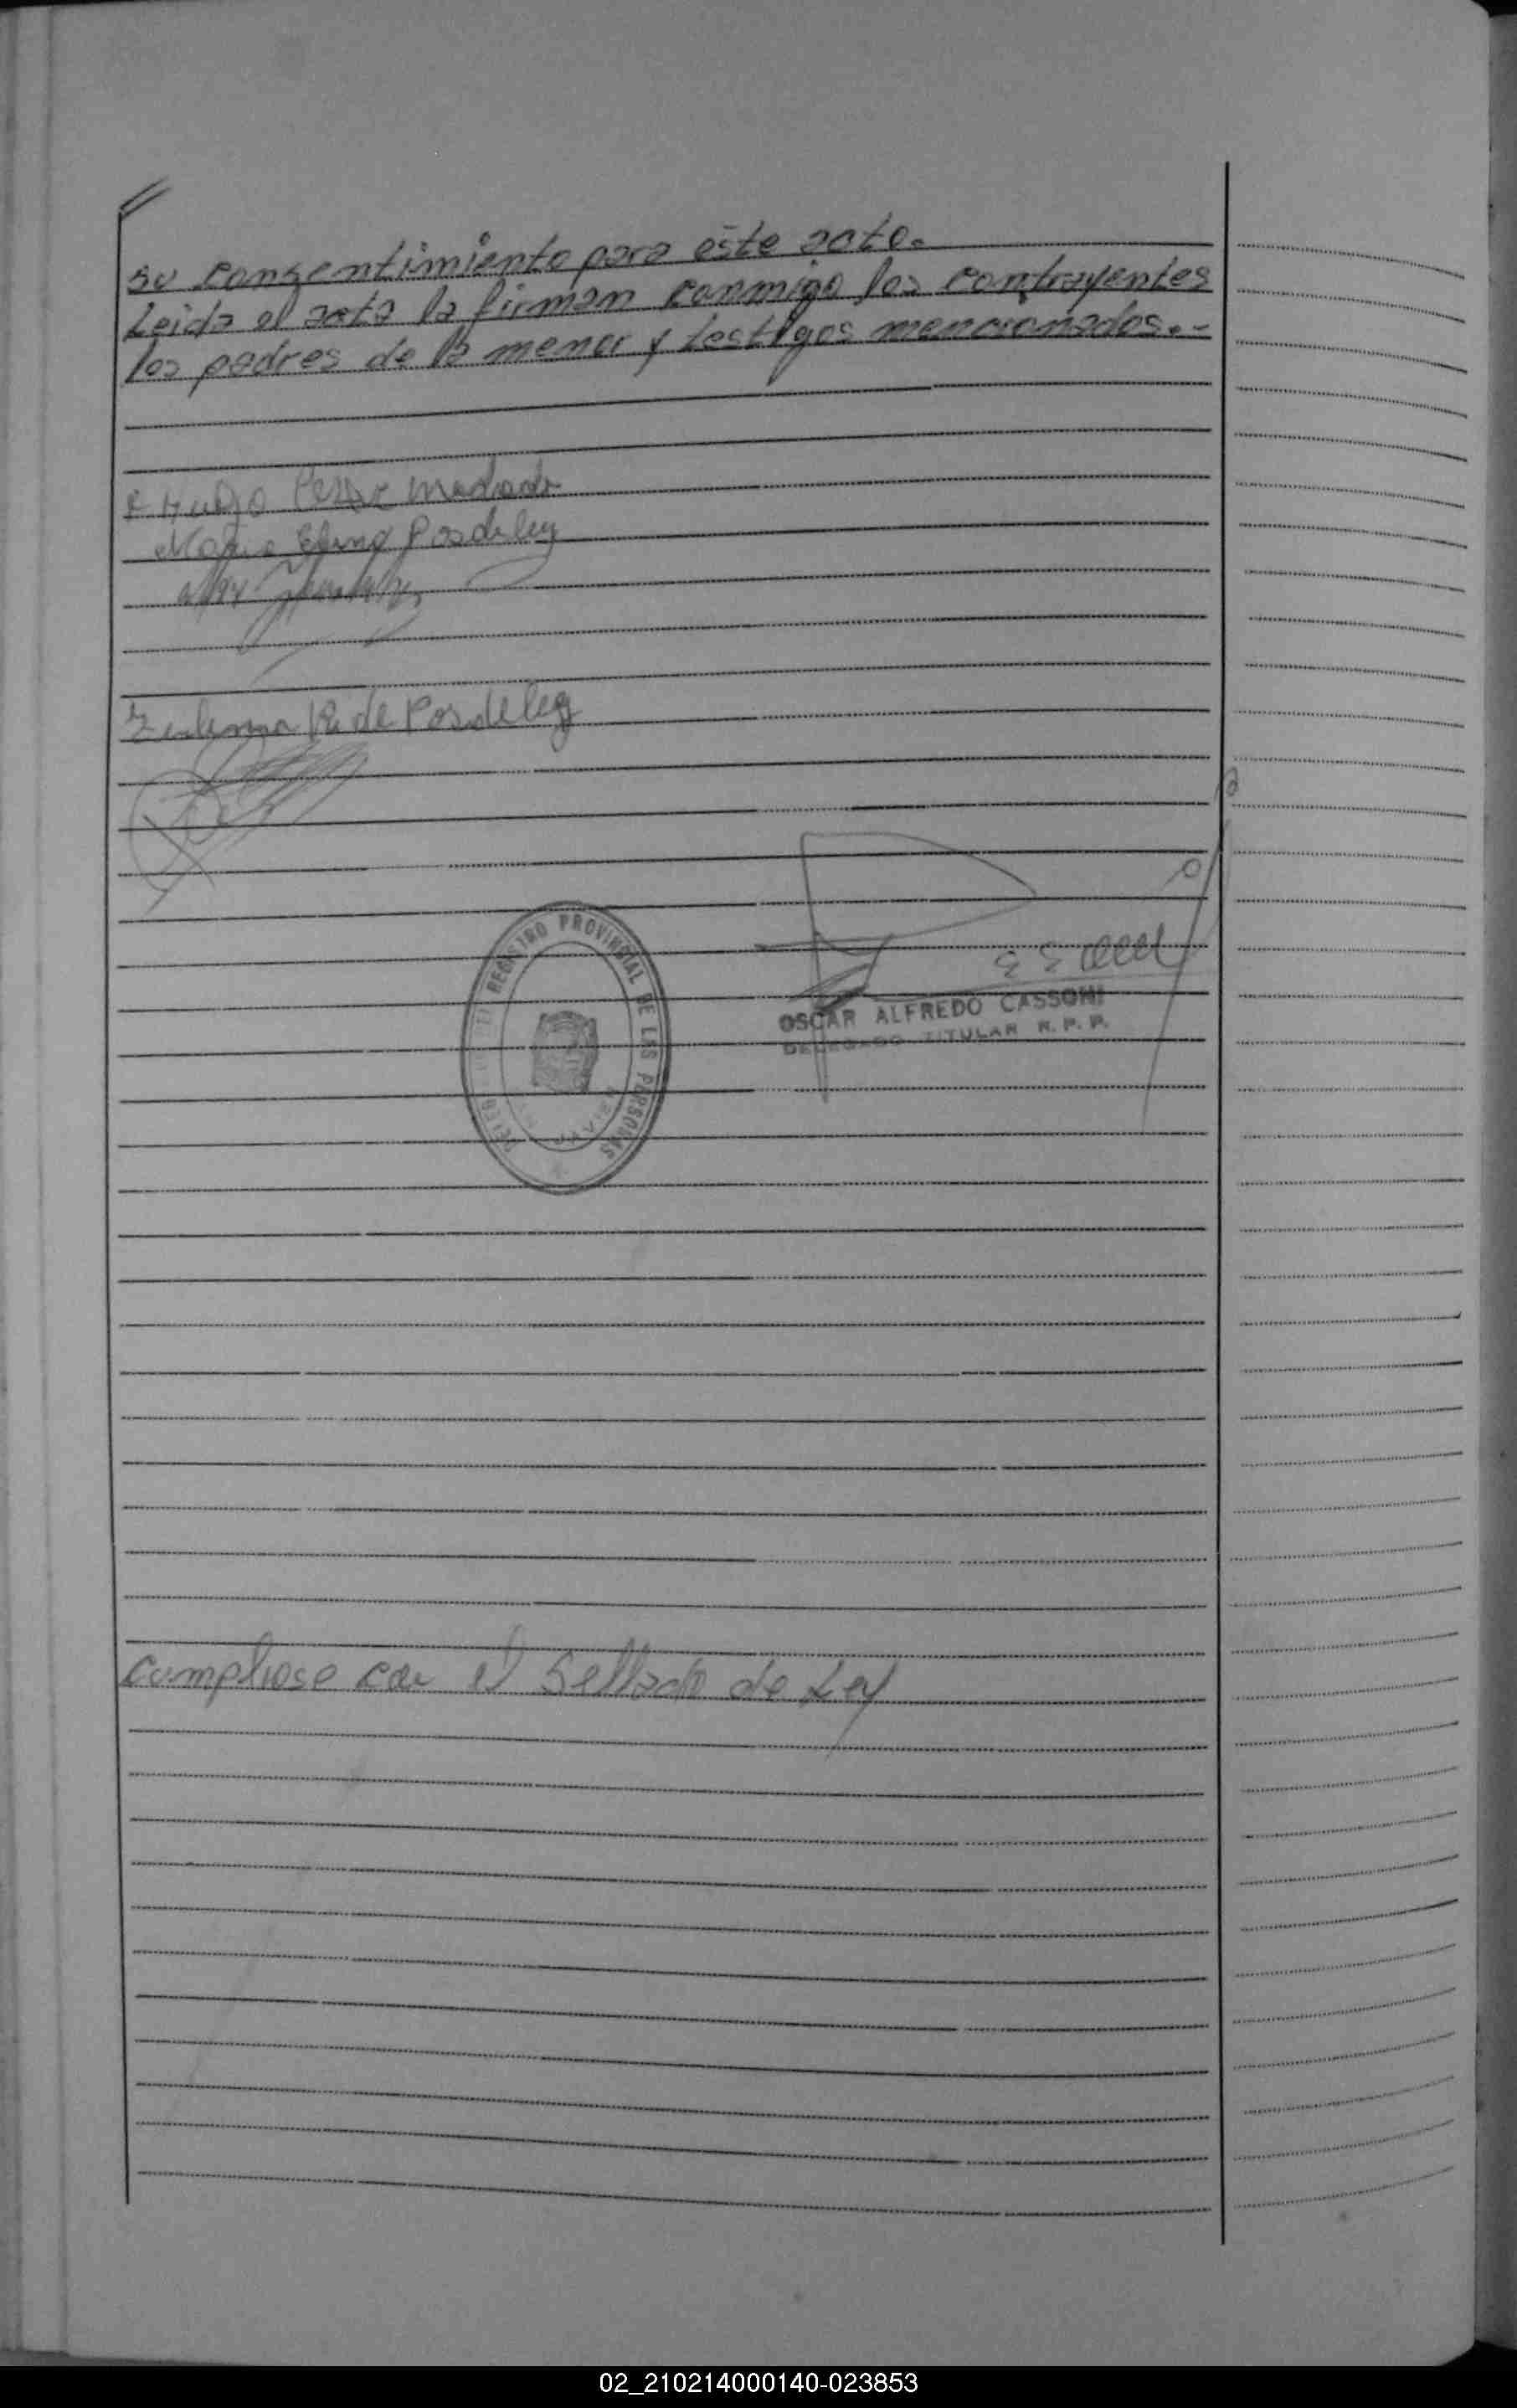 su consentimiento para este acto.
Leida el acta la firman conmigo los contrayentes
los padres de la menor y testigos mencionados.-
Hugo Machado
Maria Elena Posdeley
Zulema R. de Posdeley
REGISTRO PROVINCIAL DE LAS PERSONAS
OSCAR ALFREDO CASSONI
DELEGADO TITULAR R. P. P.
cumpliose con el sellado de Ley
02_210214000140-023853